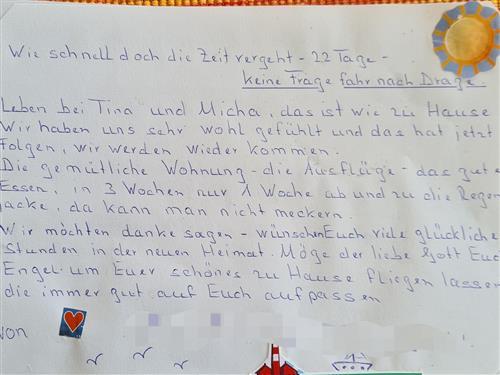 Wie schnell doch die Zeit vergeht - 22 Tage -
keine Frage fahr nach Drage.
Leben bei Tina und Micha, das ist wie zu Hause
Wir haben uns sehr wohl gefühlt und das hat jetzt
Folgen, wir werden wieder kommen.
Die gemütliche Wohnung - die Ausflüge - das gute
Essen, in 3 Wochen nur 1 Woche ab und zu die Regen
jacke, da kann man nicht meckern.
Wir möchten danke sagen - wünschen Euch viele glückliche
Stunden in der neuen Heimat. Möge der liebe Gott Euch
Engel um Euer schönes zu Hause fliegen lassen
die immer gut auf Euch aufpassen
von